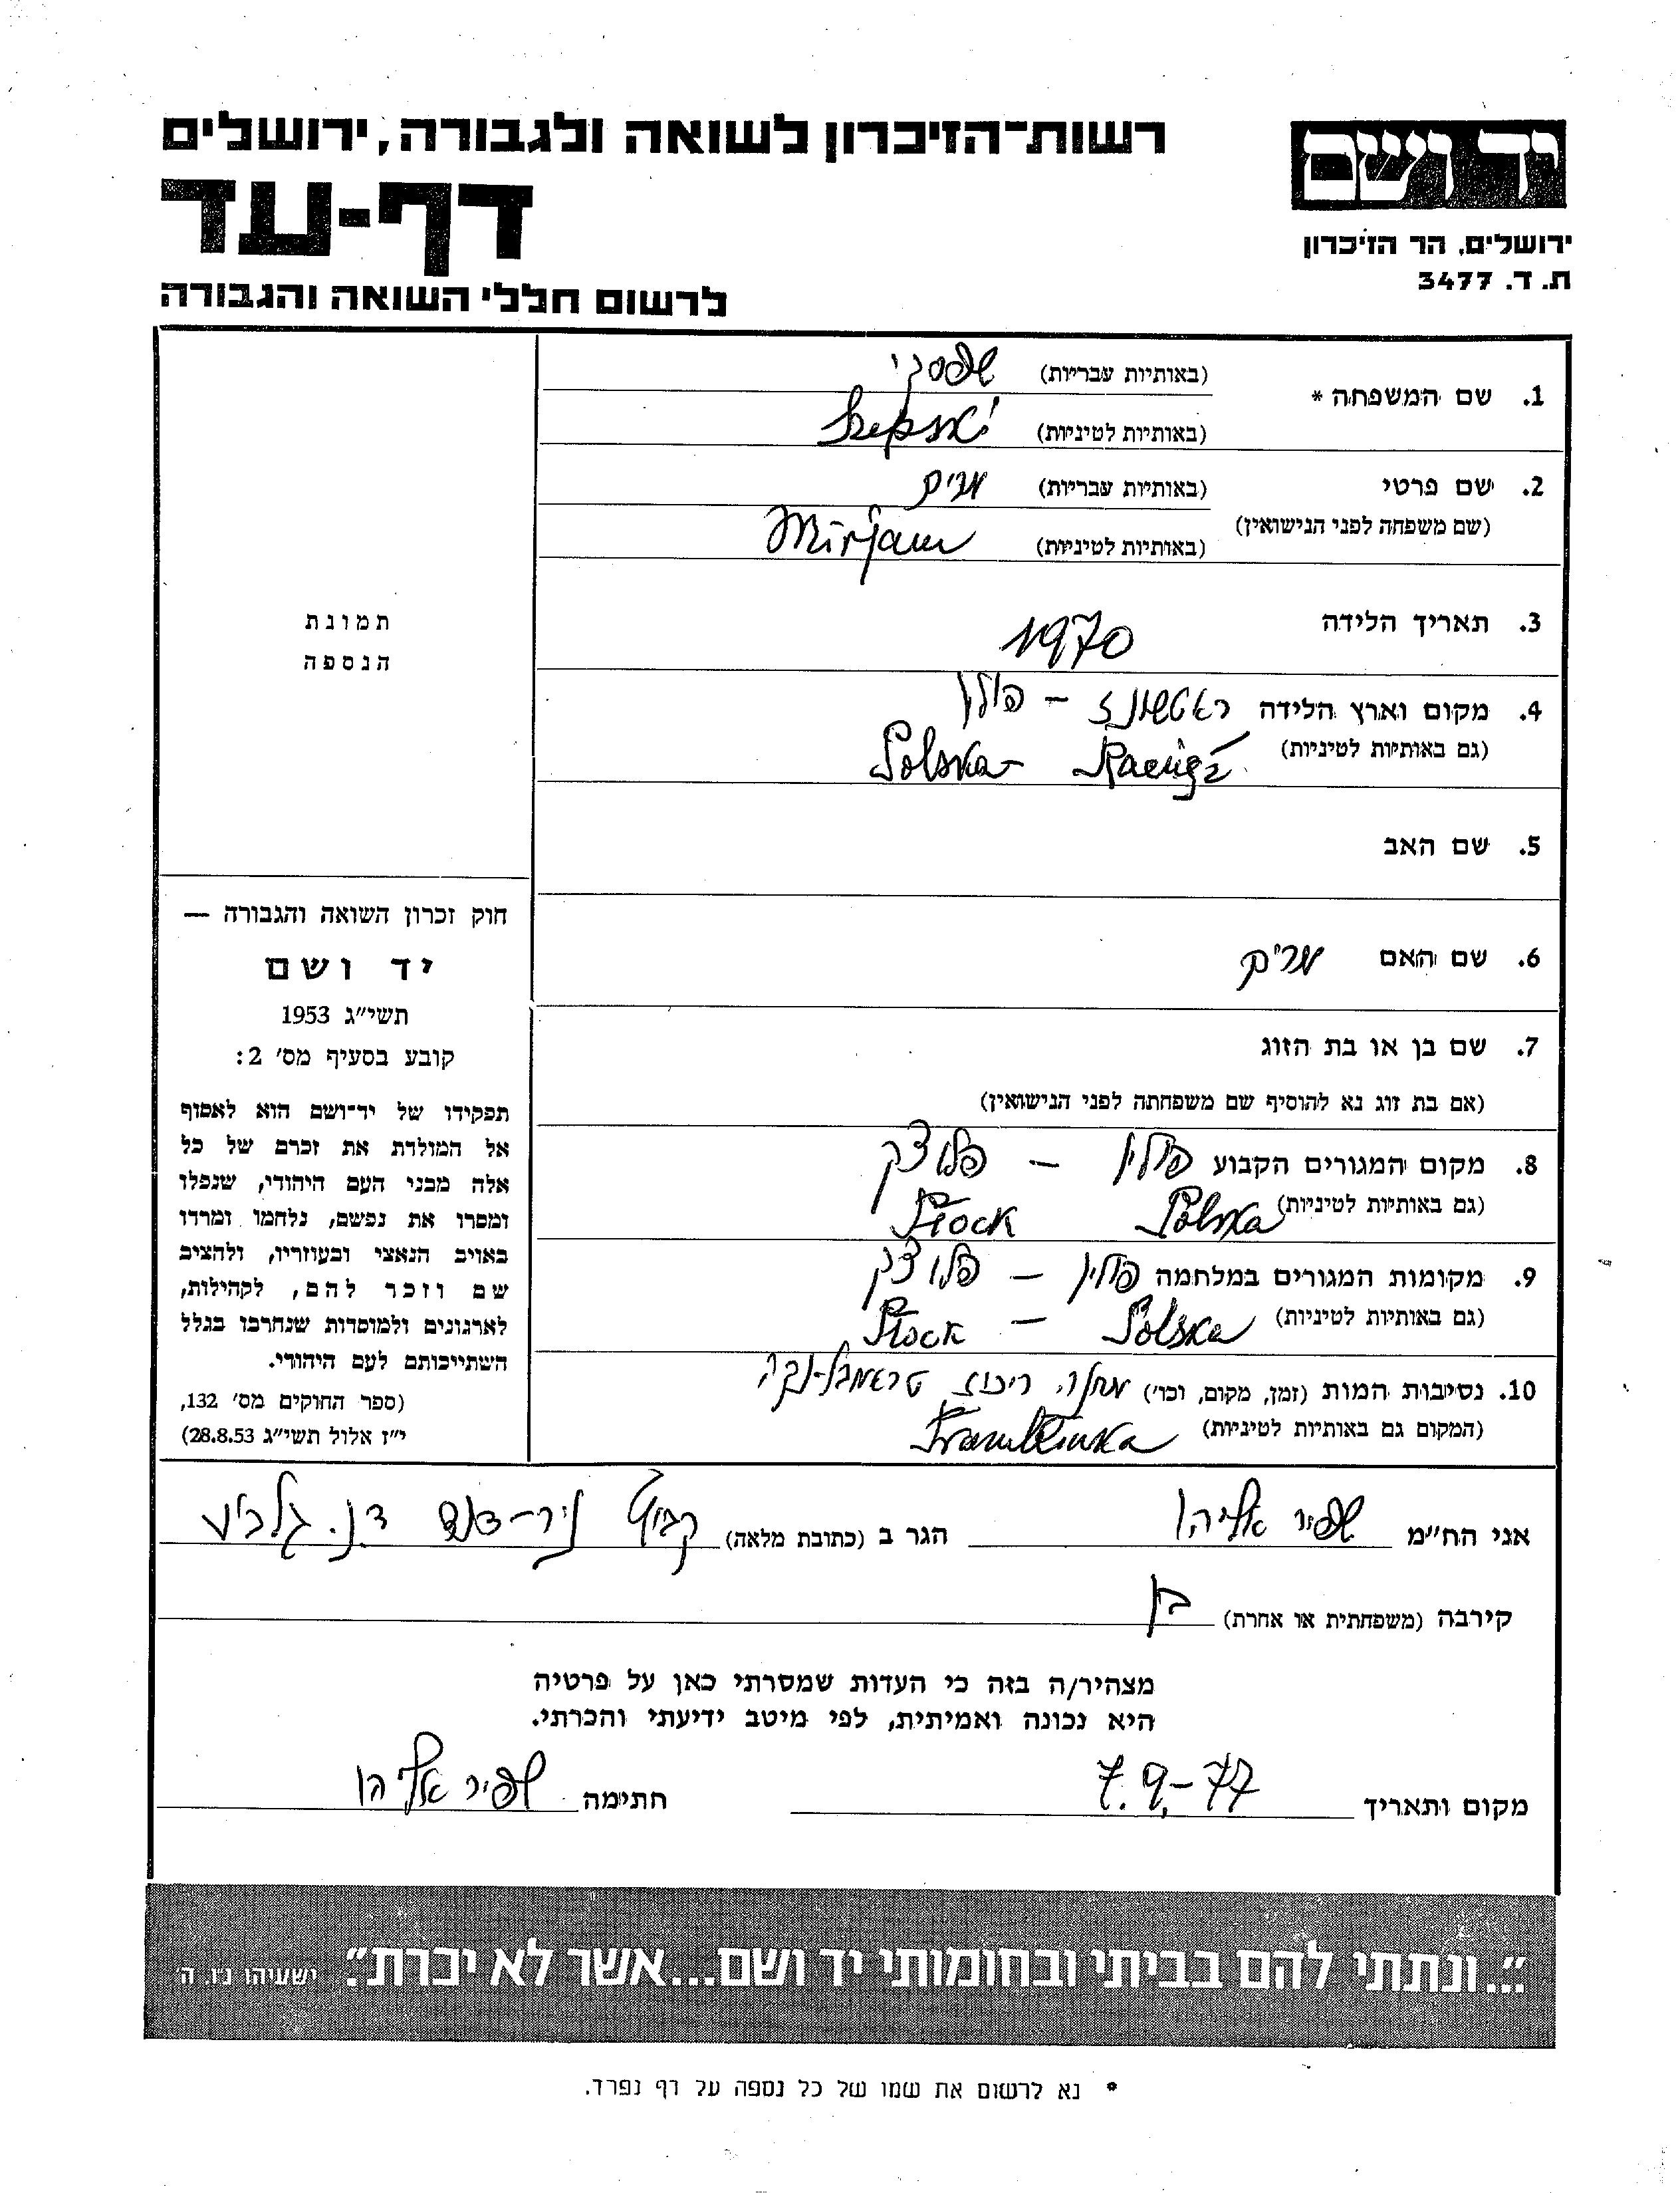 רשות־הזיכרון לשואה ולגבורה, ירושלים
דף-עד
לרשום חללי השואה והגבורה
יד ושם
ירושלים, הר הזיכרון
ת. ד. 3477
1. שם המשפחה *
(באותיות עבריות) שפסקי
(באותיות לטיניות)
2. שם פרטי
(שם משפחה לפני הנישואין)
(באותיות עבריות) מרים
(באותיות לטיניות) Mirjam
3. תאריך הלידה 1970
4. מקום וארץ הלידה – פולין
(גם באותיות לטיניות) Polska -
5. שם האב
6. שם האם מרים
7. שם בן או בת הזוג
(אם בת זוג נא להוסיף שם משפחתה לפני הנישואין)
8. מקום המגורים הקבוע פולין – פלוצק
(גם באותיות לטיניות) Polska Płock
9. מקומות המגורים במלחמה פולין – פלוצק
(גם באותיות לטיניות) Polska – Płock
10. נסיבות המות (זמן, מקום, וכו') מחנה ריכוז טראמבלינקה
(המקום גם באותיות לטיניות)
תמונת
הנספה
חוק זכרון השואה והגבורה —
יד ושם
תשי״ג 1953
קובע בסעיף מס׳ 2:
תפקידו של יד־ושם הוא לאסוף
אל המולדת את זכרם של כל
אלה מבני העם היהודי, שנפלו
ומסרו את נפשם, נלחמו ומרדו
באויב הנאצי ובעוזריו, ולהציב
שם וזכר להם, לקהילות,
לארגונים ולמוסדות שנחרבו בגלל
השתייכותם לעם היהודי.
(ספר החוקים מס׳ 132,
י״ז אלול תשי״ג 28.8.53)
אני הח״מ שפיר אליהו הגר ב (כתובת מלאה) קבוץ ניר-דוד ד.נ. גלבוע
קירבה (משפחתית או אחרת) בן
מצהיר/ה בזה כי העדות שמסרתי כאן על פרטיה
היא נכונה ואמיתית, לפי מיטב ידיעתי והכרתי.
מקום ותאריך 7.9.-77 חתימה שפיר אליהו
״...ונתתי להם בביתי ובחומותי יד ושם...אשר לא יכרת״. ישעיהו נ״ו, ה׳
* נא לרשום את שמו של כל נספה על דף נפרד.